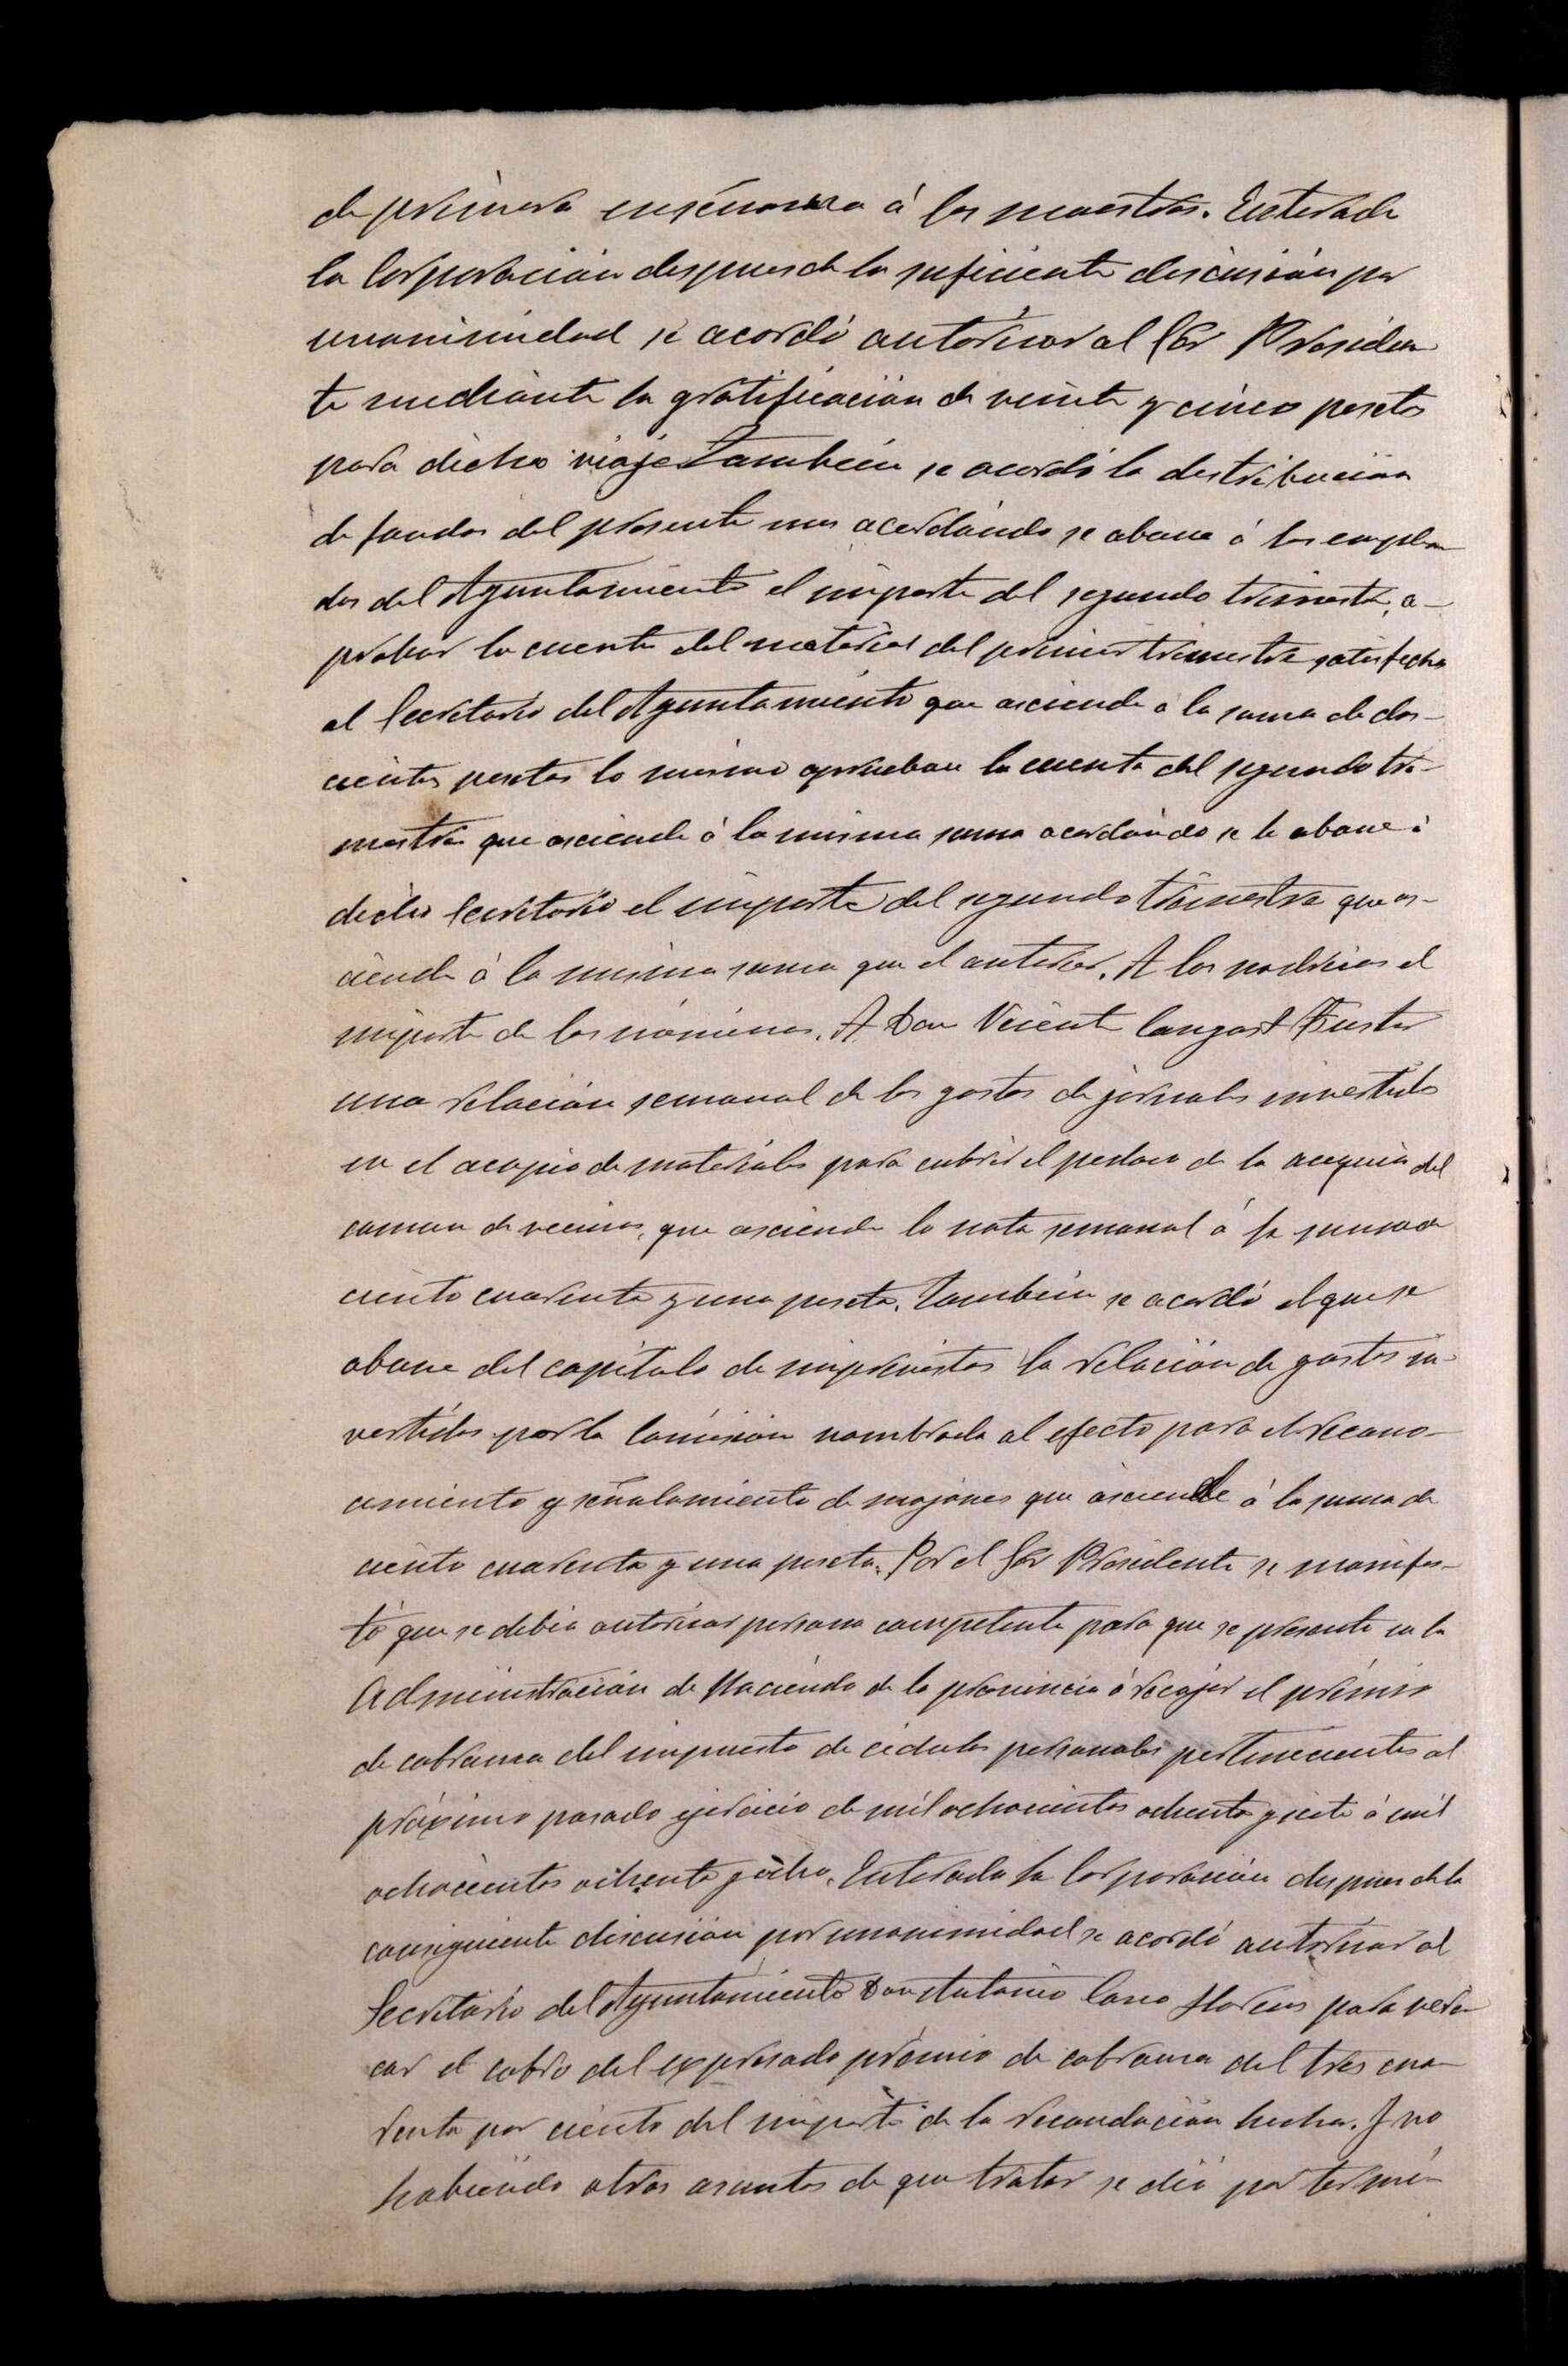 de primera enseñanza á los maestros. Enterada
la Corporacion despues de la suficiente discusión por
unanimidad se acordó autorizar al Sor Presiden
te mediante la gratificación de veinte y cinco pesetas
para dicho viaje También se acordó la destribucion
de fondos del presente mes acordándo se abone á los emplea
dos del Ayuntamiento el importe del segundo trimestre, a-
probar la cuenta del material del primer trimestre satisfecha
al Secretario del Ayuntamiento que asciende á la suma de dos-
cientas pesetas lo mismo aprueban la cuenta del segundo tri-
mestre que asciende á la misma suma acordándo se le abone á
dicho Secretario el importe del segundo trimestre que as-
ciende á la misma suma que el anterior. A las nodrizas el
importe de las nóminas. A Don Vicente Fuster
una relación semanal de los gastos de jornales invertidos
en el acopio de materiales para cubrir el pedazo de la acequia del
comun de vecinos, que asciende la nota semanal á la suma de
ciento cuarenta y una peseta. También se acordó el que se
abone del capítulo de imprevistos la relación de gastos in-
vertidos por la Comision nombrada al efecto para el recono-
cimiento y señalamiento de mojones que asciende á la suma de
ciento cuarenta y una peseta. Por el Sor Presidente se manifes-
tó que se debia autorizar persona competente para que se presente en la
Administración de Hacienda de la provincia á recojer el prémio
de cobranza del impuesto de cédulas personales pertenecientes al
próximo pasado ejercicio de mil ochocientos ochenta y siete á mil
ochocientos ochenta y ocho. Enterada la Corporación despues de la
consiguiente discusión por unanimidad se acordó autorizar al
Secretario del Ayuntamiento Don Antonio para verifi
car el cobro del expresado prémio de cobranza del tres cua-
renta por ciento del importe de la recaudación hecha. Y no
habiéndo otros asuntos de que tratar se dió por termi-